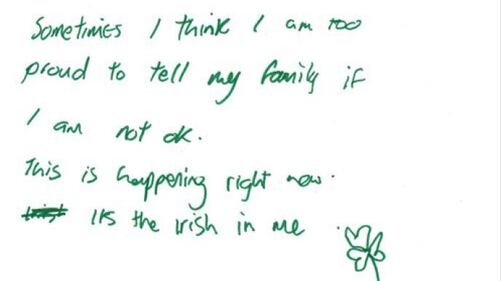 Sometimes I think I am too
proud to tell my family if
I am not ok.
This is happening right now.
Its the irish in me.